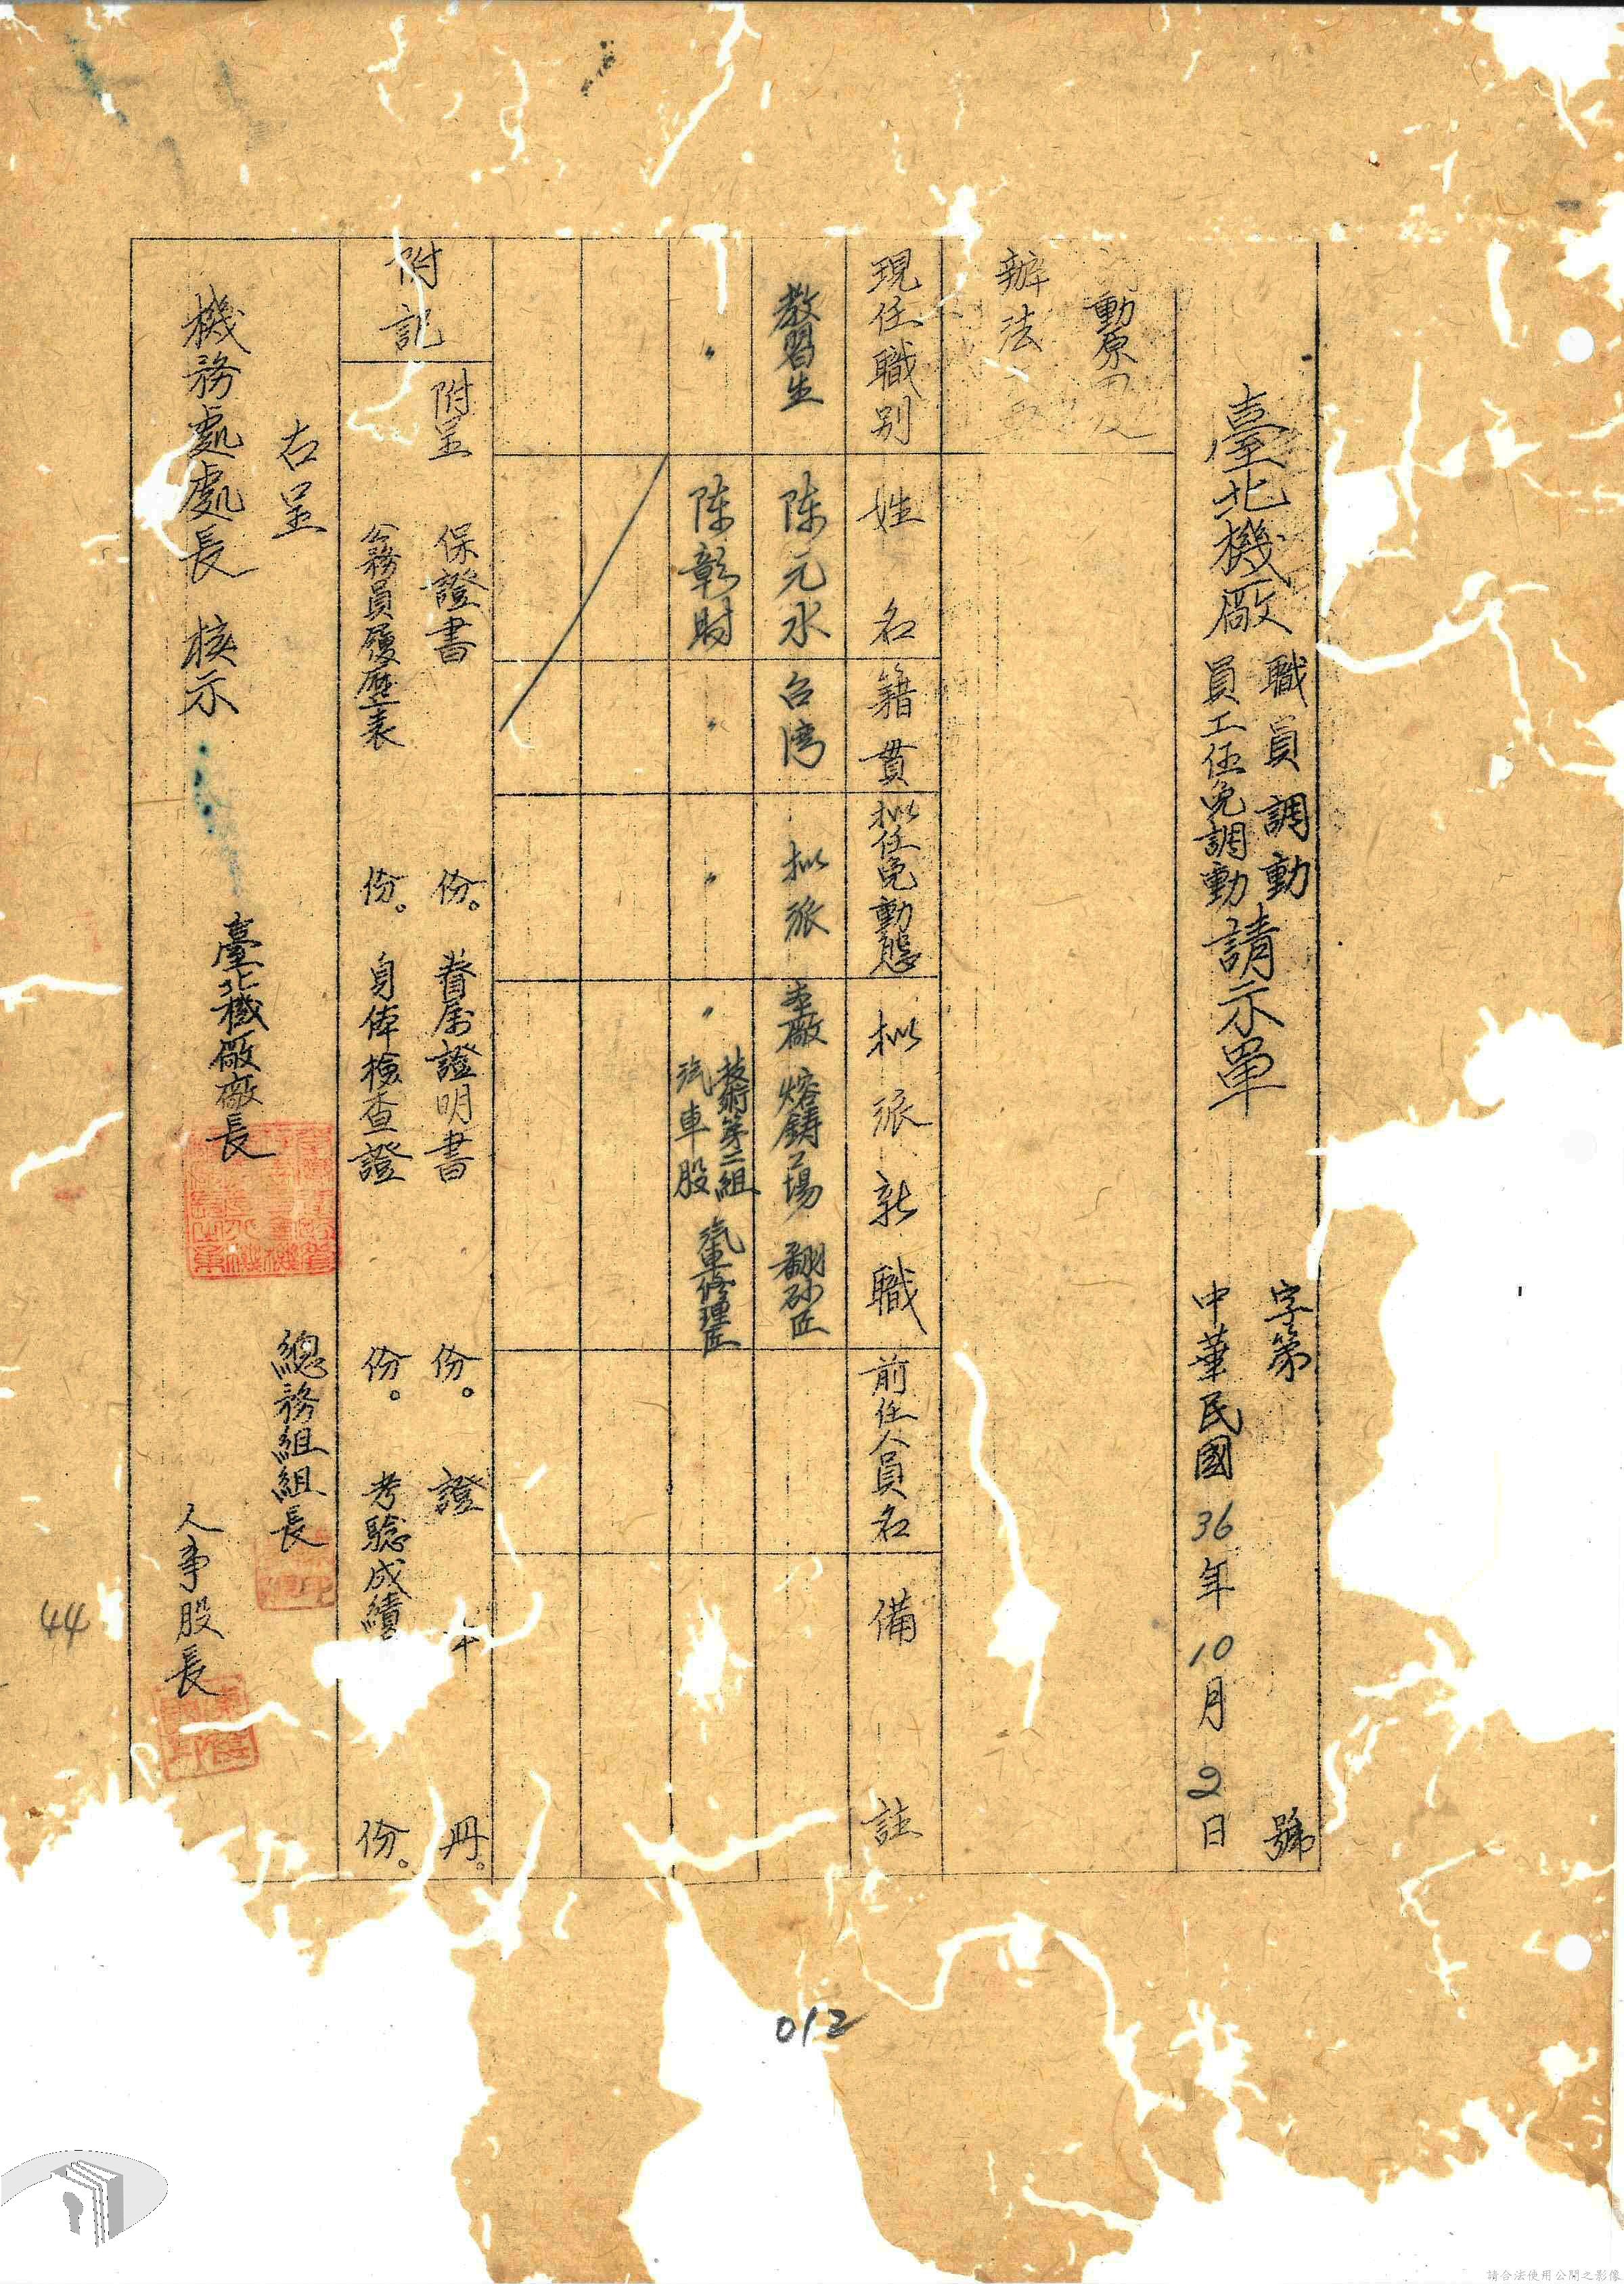 臺北機廠 職員調動 員工任免調動 請示單
字第 號
中華民國36年10月2日
動原
辦法
現任職別 姓名 籍貫 拟任免動態 拟派新職 前任人員名 備註
教習生 陈元水 台湾 拟派 本廠 熔鑄場 翻砂匠
〃 陈彰財 〃 〃 〃 技術第二組 汽車股 汽車修理匠
附記
附呈 保證書 份。 眷屬證明書 份。 證 冊。
公務員履歷表 份。 身体檢查證 份。 考驗成績 份。
右呈
機務處處長 核示
臺北機廠廠長
總務組組長
人事股長
44
012
請合法使用公開之影像